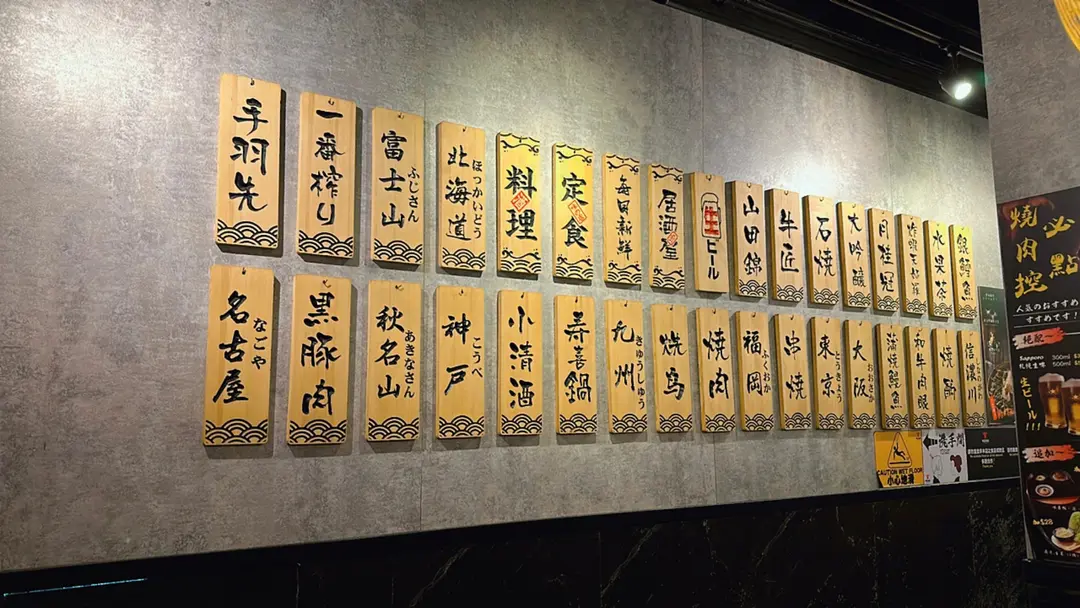 手羽先
一番搾り
富士山
ふじさん
北海道
ほっかいどう
料理
定食
毎日新鮮
居酒屋
生ビール
山田錦
牛匠
石焼
大吟醸
月桂冠
水果茶
銀鱈魚
名古屋
なごや
黒豚肉
秋名山
あきなさん
神戸
こうべ
小清酒
寿喜鍋
九州
きゅうしゅう
焼鸟
焼肉
福岡
ふくおか
串焼
東京
とうきょう
大阪
おおさか
蒲焼鰻魚
和牛肉眼
焼酎
信濃川
CAUTION WET FLOOR
小心地滑
洗手間
燒肉控
必點
人気のおすすめ
すすめです!
Sapporo
300ml
500ml
生ビール!!!
追加〜